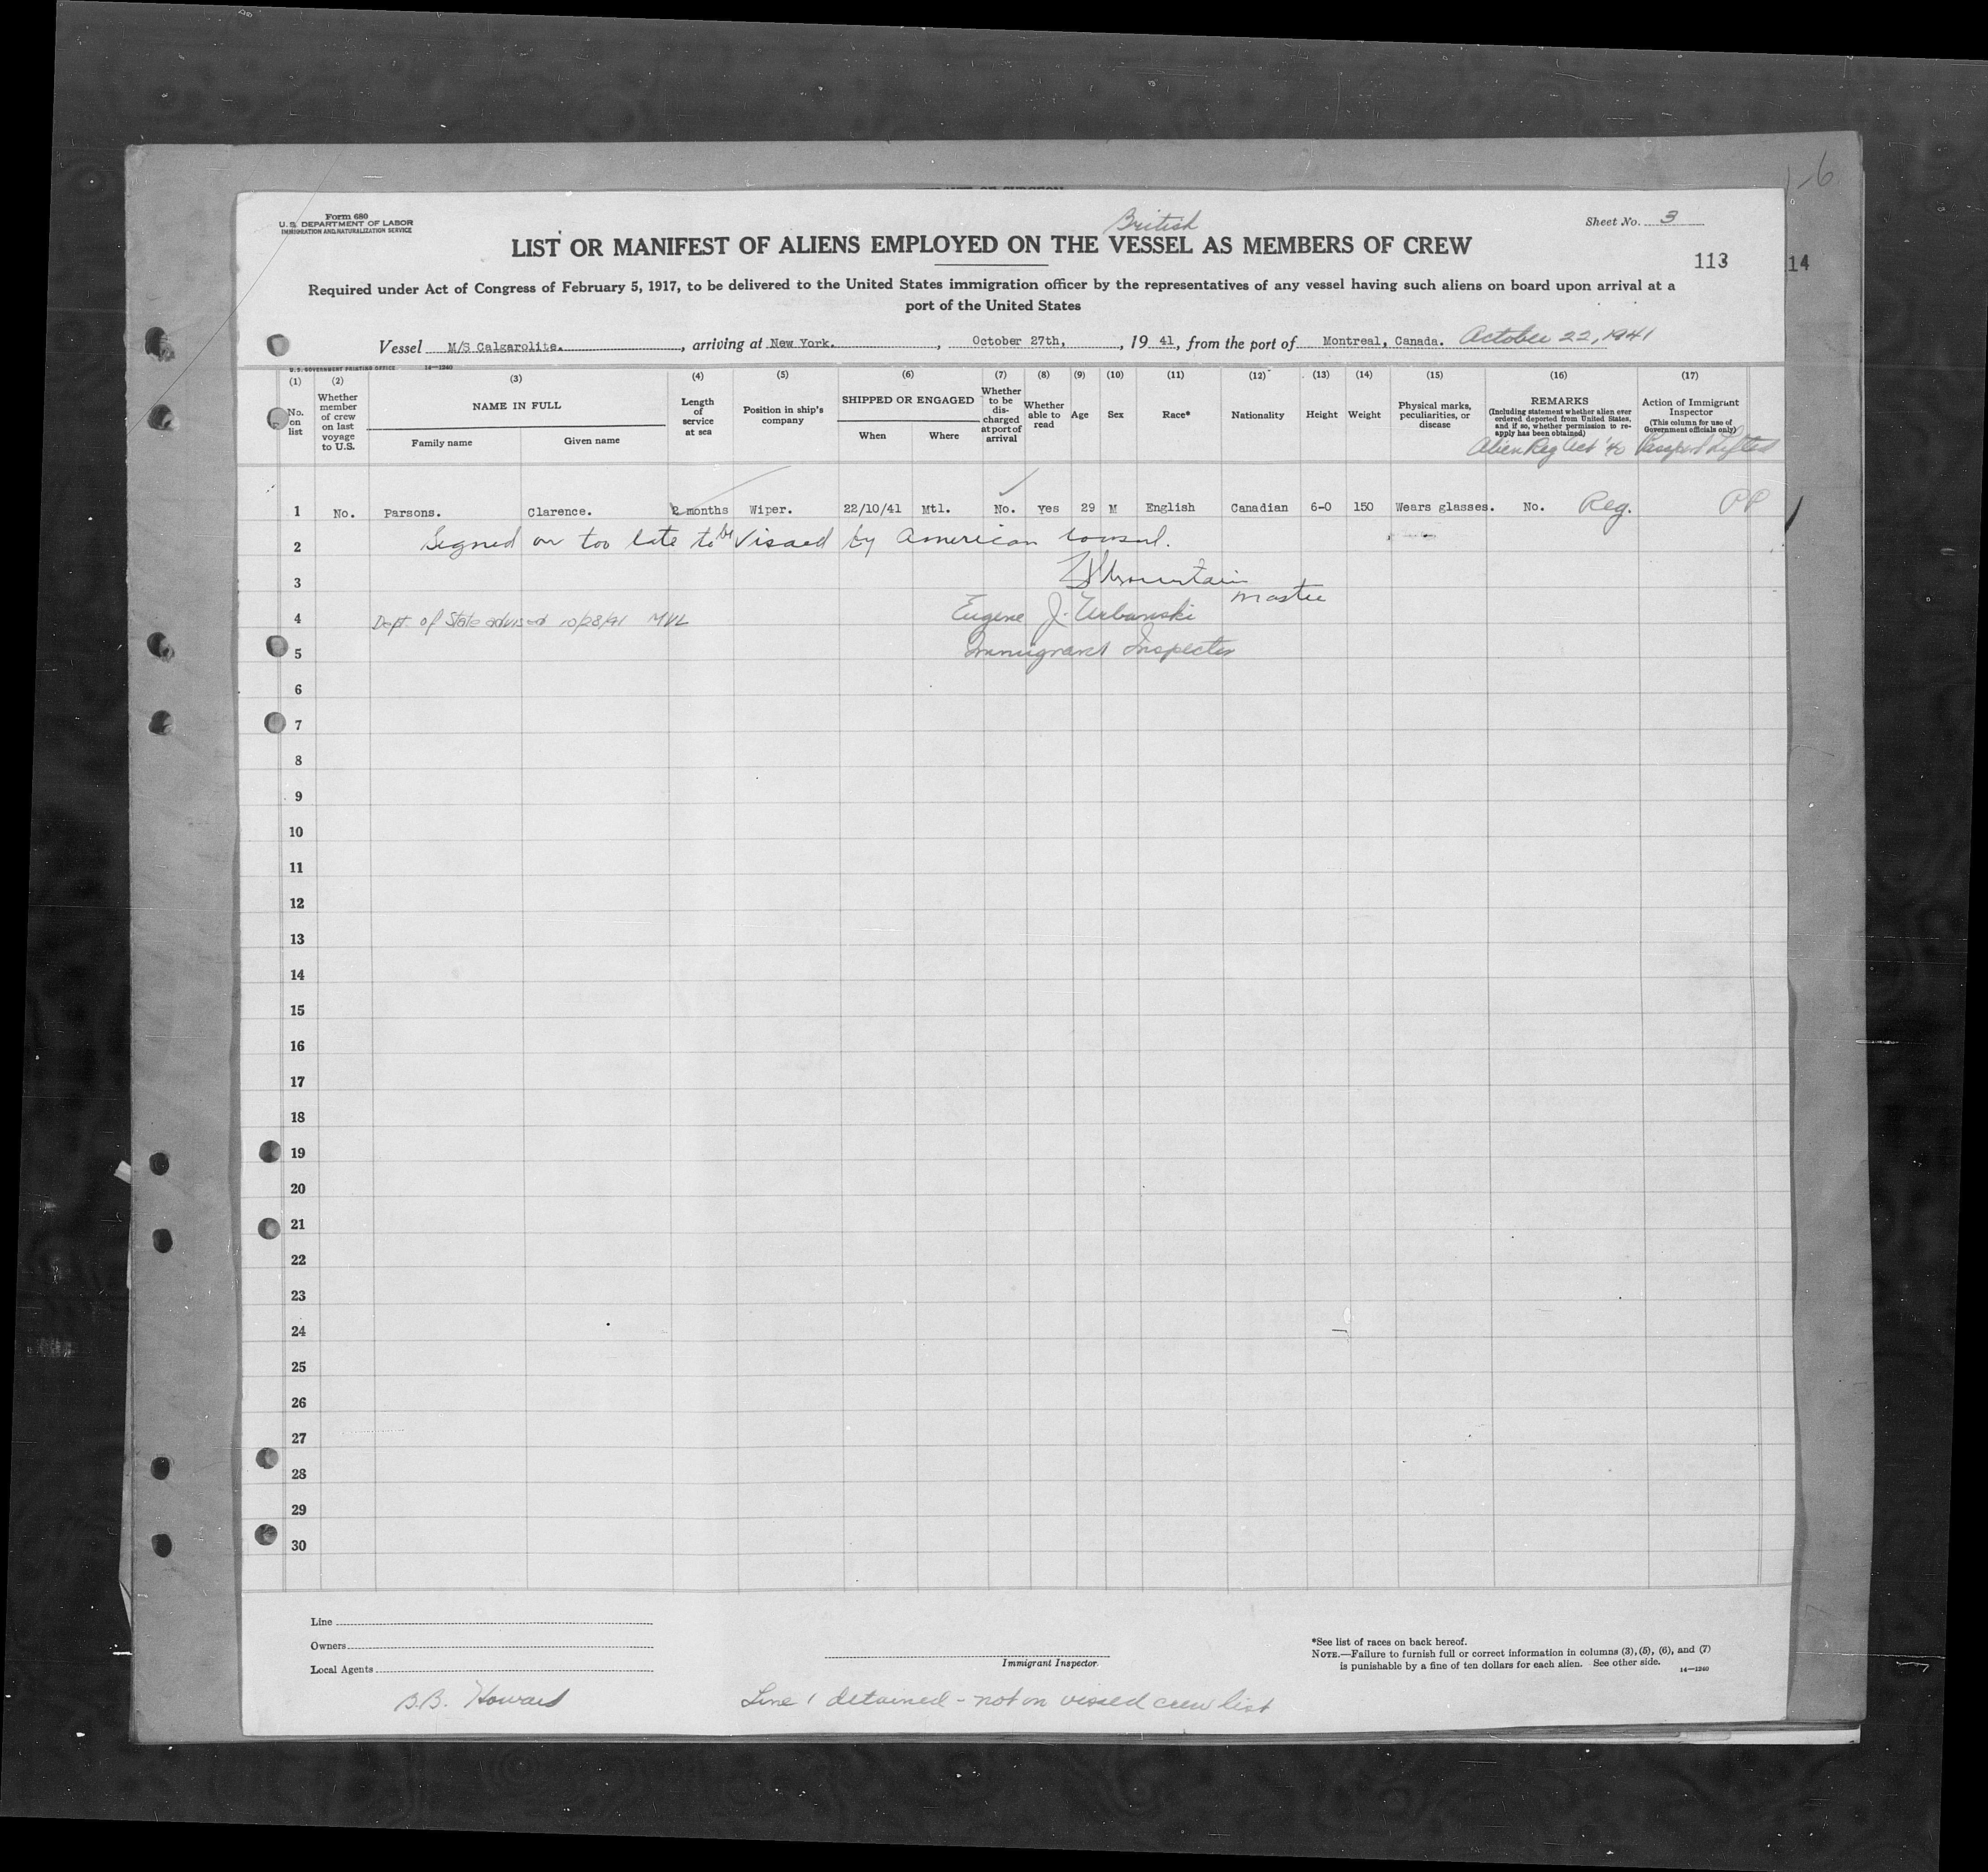 16
Form 680
U.S. DEPARTMENT OF LABOR
IMMIGRATION AND NATURALIZATION SERVICE
British
Sheet No. 3
LIST OR MANIFEST OF ALIENS EMPLOYED ON THE VESSEL AS MEMBERS OF CREW
113
14
Required under Act of Congress of February 5, 1917, to be delivered to the United States immigration officer by the representatives of any vessel having such aliens on board upon arrival at a
port of the United States
Vessel M/S Calgarolite. , arriving at New York. , October 27th, , 19 41, from the port of Montreal, Canada. October 22, 1941
U.S. GOVERNMENT PRINTING OFFICE 14—1240
(1) (2) (3) (4) (5) (6) (7) (8) (9) (10) (11) (12) (13) (14) (15) (16) (17)
No. on list
Whether member of crew on last voyage to U.S.
NAME IN FULL
Family name
Given name
Length of service at sea
Position in ship's company
SHIPPED OR ENGAGED
When
Where
Whether to be discharged at port of arrival
Whether able to read
Age
Sex
Race*
Nationality
Height
Weight
Physical marks, peculiarities, or disease
REMARKS
(Including statement whether alien ever ordered deported from United States, and if so, whether permission to reapply has been obtained)
Alien Reg Act '40
Action of Immigrant Inspector
(This column for use of Government officials only)
Passport Lifted
1 No. Parsons. Clarence. 2 months Wiper. 22/10/41 Mtl. No. yes 29 M English Canadian 6-0 150 Wears glasses. No. Reg. PP
2 Signed on too late to be Visaed by American Consul.
3 Mountain
Master
4 Dept. of State advised 10/28/41 MVL Eugene J. Urbanski
5 Immigrant Inspector
6
7
8
9
10
11
12
13
14
15
16
17
18
19
20
21
22
23
24
25
26
27
28
29
30
Line
Owners
Local Agents
Immigrant Inspector.
*See list of races on back hereof.
NOTE.—Failure to furnish full or correct information in columns (3), (5), (6), and (7)
is punishable by a fine of ten dollars for each alien. See other side.
14—1240
B.B. Howard
Line 1 detained - not on visaed crew list